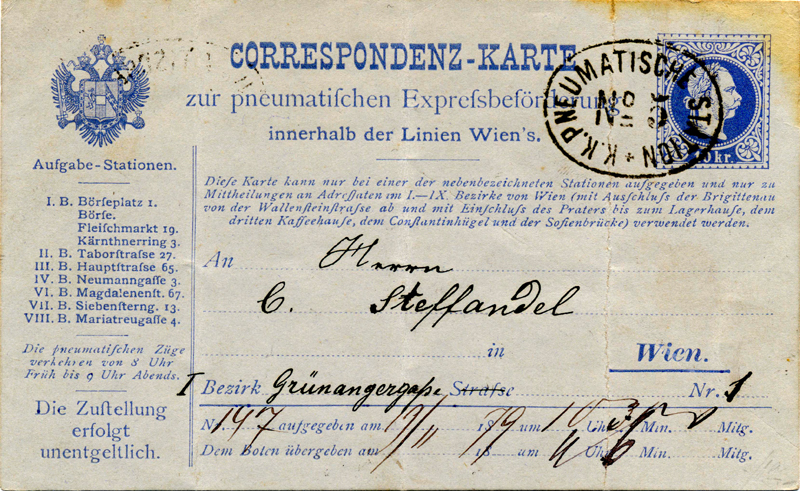 CORRESPONDENZ-KARTE
zur pneumatiſchen Expreſsbeförderung
innerhalb der Linien Wien's.
K.K. PNEUMATISCHE STATION
No
10 kr.
Aufgabe-Stationen.
I. B. Börſeplatz 1.
Börſe.
Fleiſchmarkt 19.
Kärnthnerring 3.
II. B. Taborſtraſse 27.
III. B. Hauptſtraſse 65.
IV. B. Neumanngaſſe 3.
VI. B. Magdalenenſt. 67.
VII. B. Siebenſterng. 13.
VIII. B. Mariatreugaſſe 4.
Die pneumatiſchen Züge
verkehren von 8 Uhr
Früh bis 9 Uhr Abends.
Die Zuſtellung
erfolgt
unentgeltlich.
Dieſe Karte kann nur bei einer der nebenbezeichneten Stationen aufgegeben und nur zu
Mittheilungen an Adreſſaten im I.—IX. Bezirke von Wien (mit Ausſchluſs der Brigittenau
von der Wallenſteinſtraſse ab und mit Einſchluſs des Praters bis zum Lagerhauſe, dem
dritten Kaffeehauſe, dem Conſtantinhügel und der Sofienbrücke) verwendet werden.
An Herrn
C. Steffandel
in Wien.
I Bezirk Grünangergaße Straſse Nr. 1
N. 197 aufgegeben am 13/11 18 79 um 10 Uhr Min. Mitg.
Dem Boten übergeben am 18 um Uhr Min. Mitg.